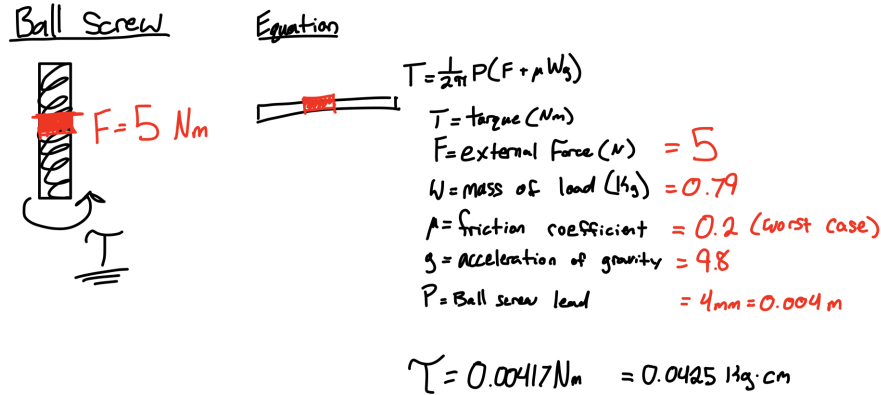 Ball Screw
F=5 Nm
T
Equation
T=1/2π P(F+μWg)
T=torque(Nm)
F=external Force(N) =5
W=mass of load(Kg) =0.79
μ=friction coefficient =0.2 (worst case)
g=acceleration of gravity =9.8
P=Ball screw lead =4mm=0.004m
T=0.00417Nm =0.0425 Kg·cm